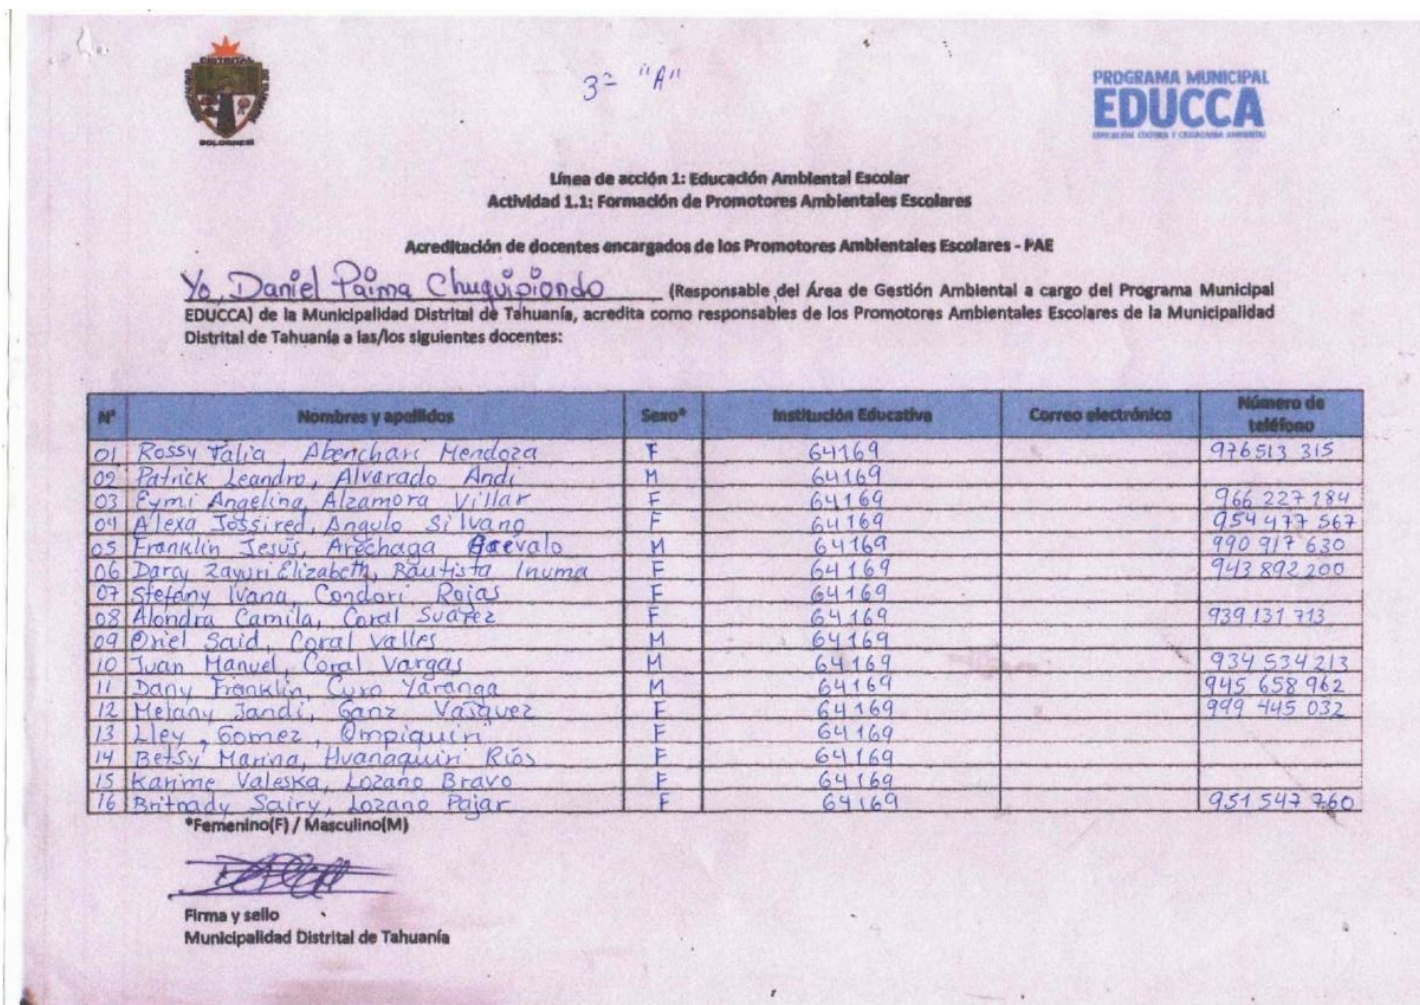 3º "A"
PROGRAMA MUNICIPAL
EDUCCA
EDUCACIÓN, CULTURA Y CIUDADANÍA AMBIENTAL
DISTRITAL
BOLOGNESI
Línea de acción 1: Educación Ambiental Escolar
Actividad 1.1: Formación de Promotores Ambientales Escolares
Acreditación de docentes encargados de los Promotores Ambientales Escolares - PAE
Yo, Daniel Paima Chuquipiondo (Responsable del Área de Gestión Ambiental a cargo del Programa Municipal
EDUCCA) de la Municipalidad Distrital de Tahuanía, acredita como responsables de los Promotores Ambientales Escolares de la Municipalidad
Distrital de Tahuanía a las/los siguientes docentes:
Nº Nombres y apellidos Sexo* Institución Educativa Correo electrónico Número de teléfono
01 Rossy Talia, Abenchari Mendoza F 64169 976513 315
02 Patrick Leandro, Alvarado Andi M 64169
03 Eymi Angelina, Alzamora Villar F 64169 966 227 184
04 Alexa Jossired, Angulo Silvano F 64169 954 477 567
05 Franklin Jesús, Aréchaga Arévalo M 64169 990 917 630
06 Darcy Zayuri Elizabeth, Bautista Inuma F 64169 943 892 200
07 Stefany Ivana, Condori Rojas F 64169
08 Alondra Camila, Coral Suárez F 64169 939 131 713
09 Oriel Said, Coral Valles M 64169
10 Juan Manuel, Coral Vargas M 64169 934 534 213
11 Dany Franklin, Curo Yaranga M 64169 945 658 962
12 Melany Jandi, Ganz Vasquez F 64169 999 445 032
13 Lley, Gomez, Ompiquiri F 64169
14 Betsy Marina, Huanaquiri Ríos F 64169
15 Karime Valeska, Lozano Bravo F 64169
16 Britnady Sairy, Lozano Pajar F 64169 951 547 760
*Femenino(F) / Masculino(M)
Firma y sello
Municipalidad Distrital de Tahuanía